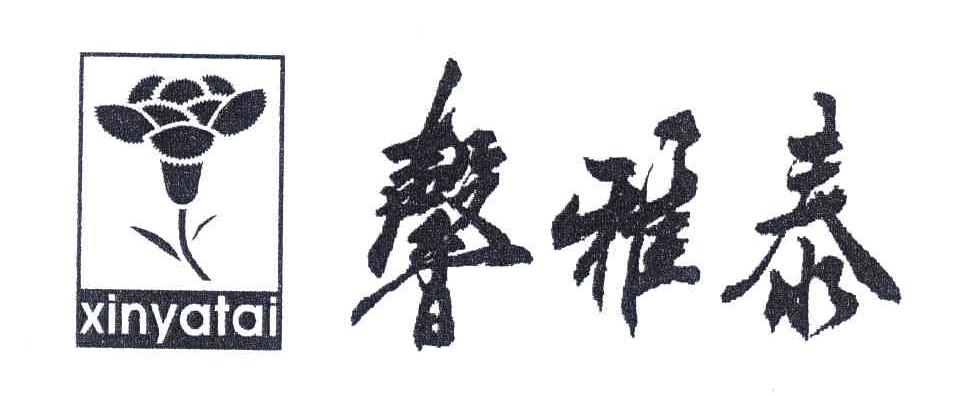 xinyatai
馨雅泰